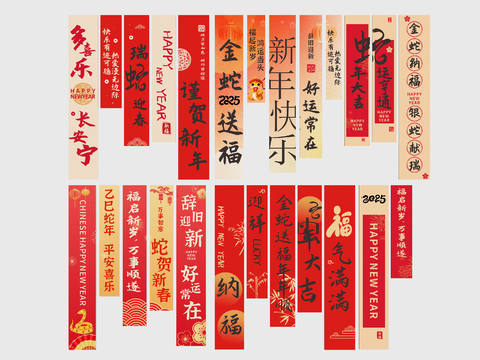 多喜乐
HAPPY
NEWYEAR
长安宁
快乐有迹可循
热爱漫无边际
瑞蛇迎春
HAPPY NEW YEAR
谨贺新年
金蛇
2025
送福
鸿运当头
福起新岁
新年快乐
辞旧迎新
好运常在
快乐有迹可循
热爱漫无边际
蛇年大吉
HAPPY
NEW YEAR
蛇运亨通
HAPPY
NEW YEAR
金蛇纳福
银蛇献瑞
CHINESE HAPPY NEW YEAR
乙巳蛇年 平安喜乐
福启新岁，万事顺遂
万事如意
蛇贺新春
辞旧迎新
HAPPY
NEW YEAR
好运常在
HAPPY NEW YEAR
纳福
迎祥
LUCKY
金蛇送福年年顺
蛇年大吉
福气满满
2025
HAPPY NEW YEAR
福启新岁，万事顺遂